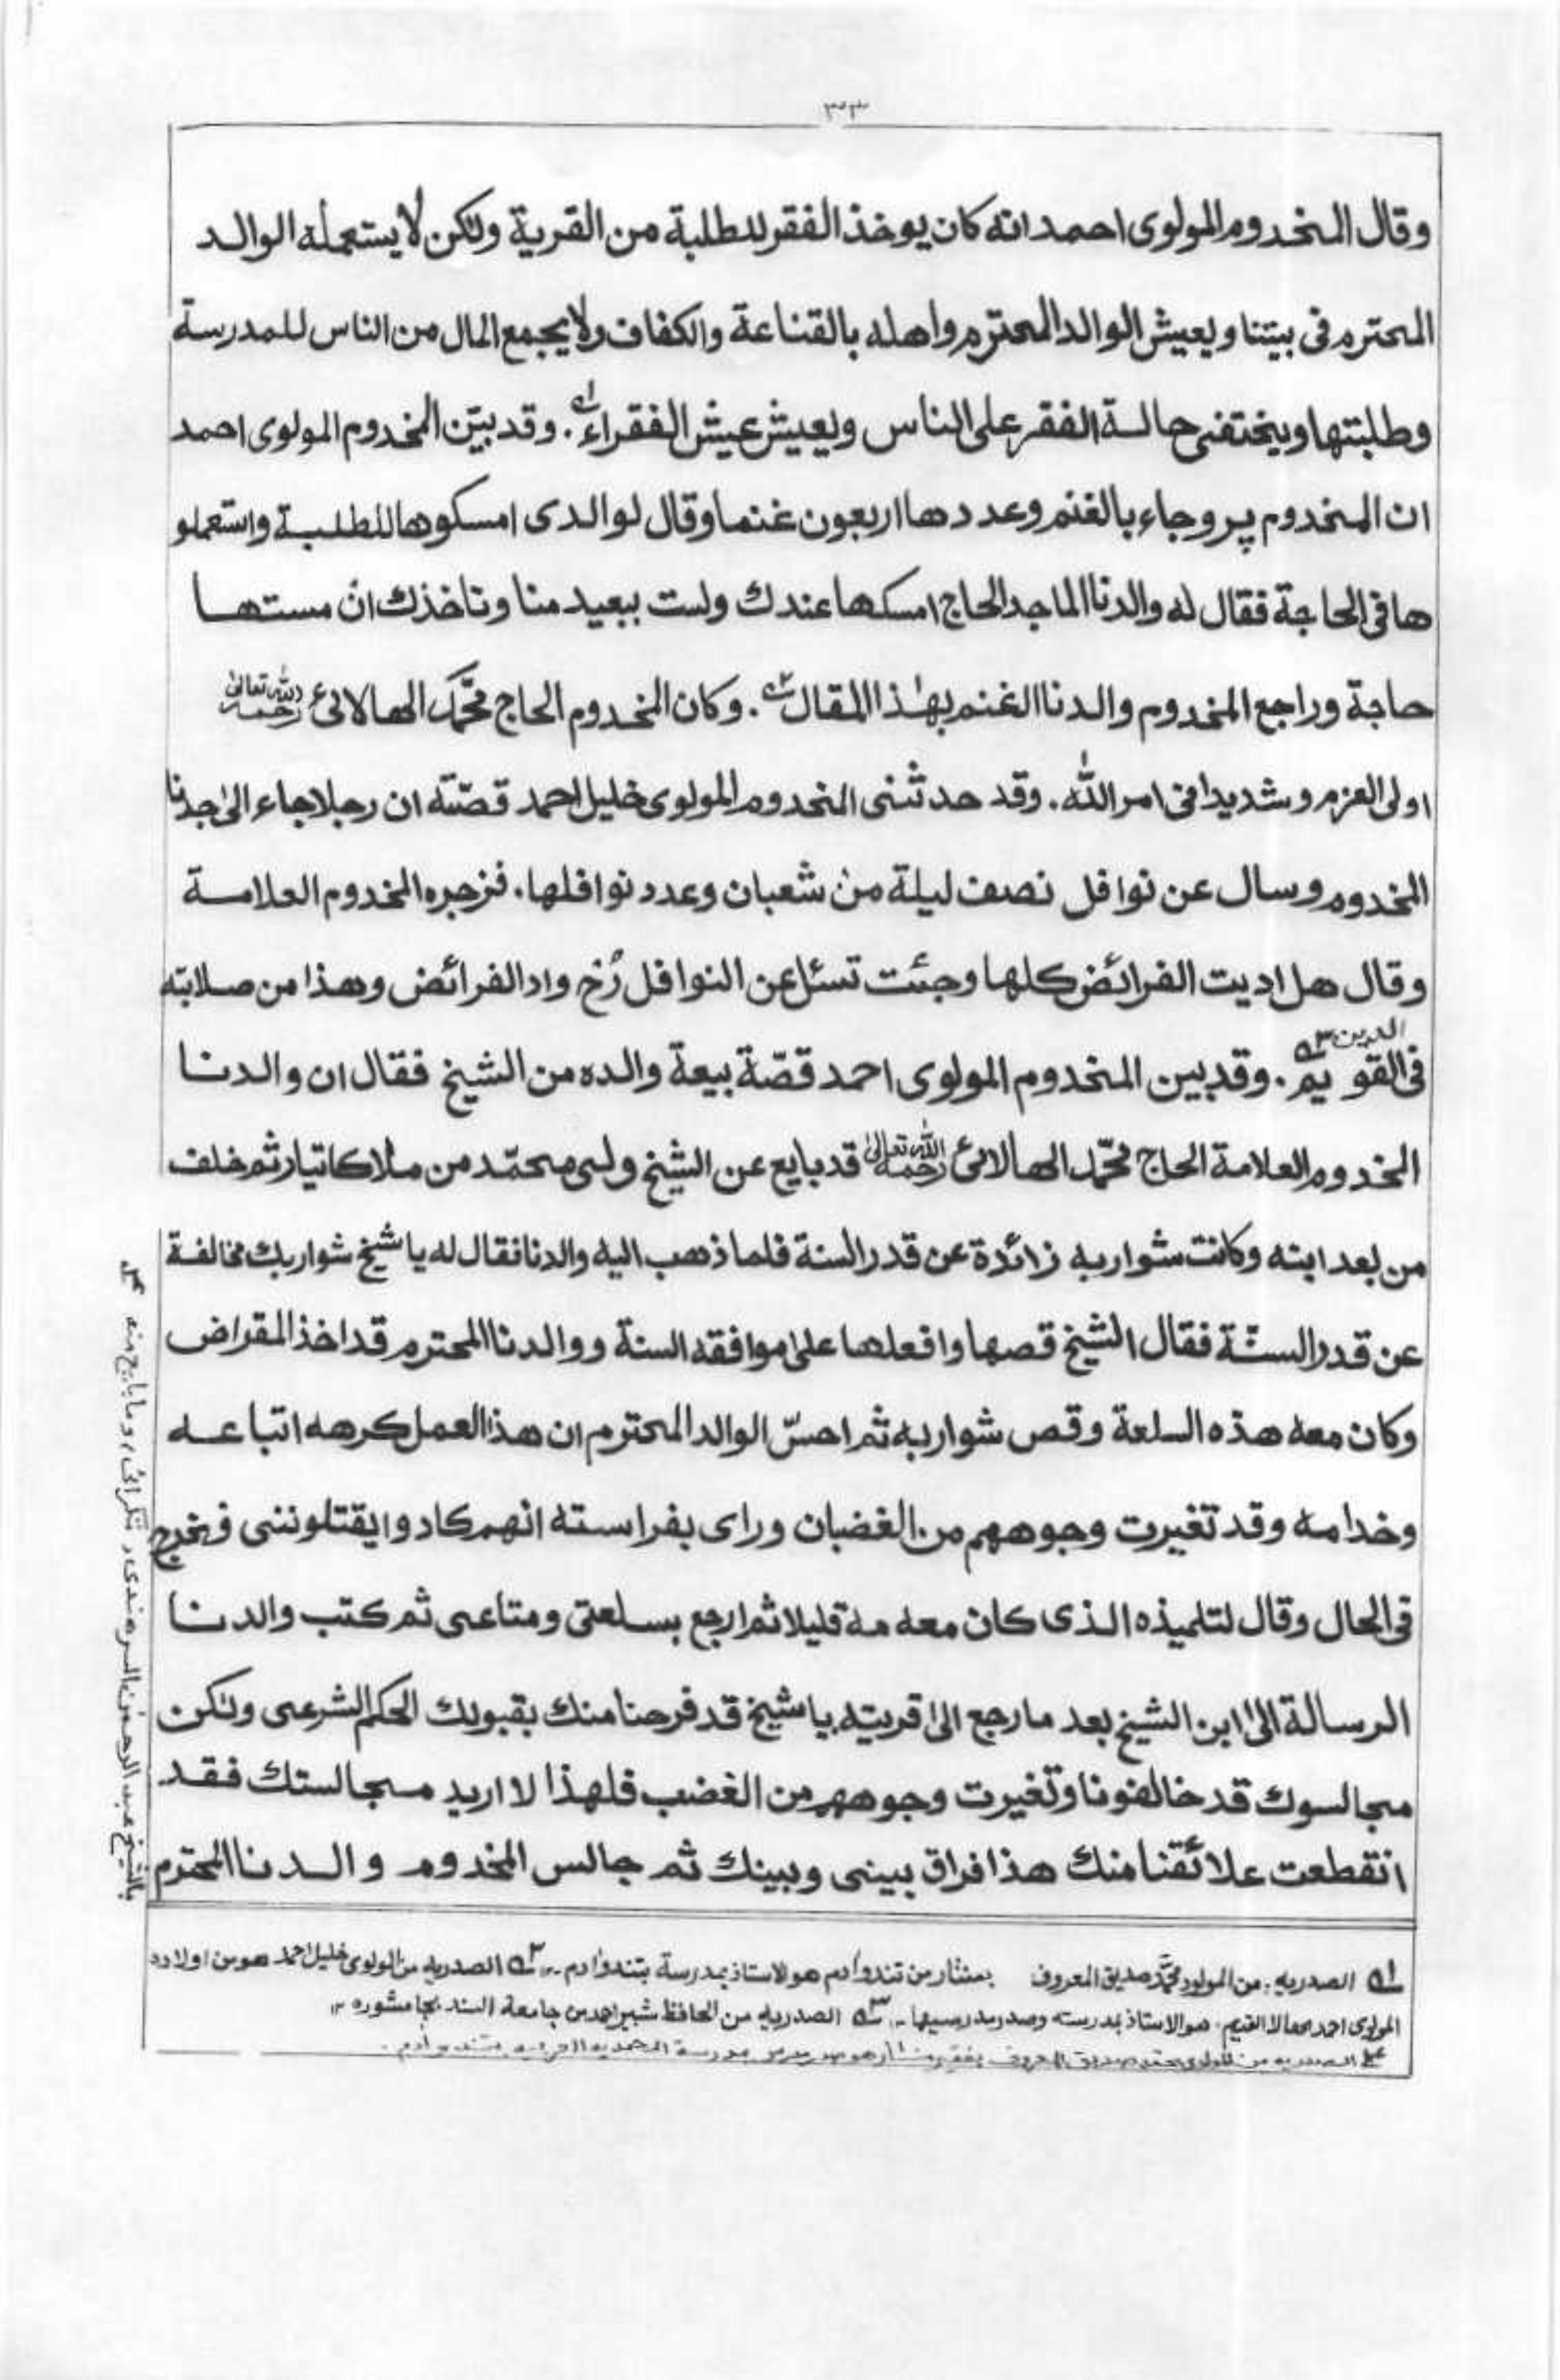 ٣٣
وقال المخدوم المولوى احمد انه كان يوخذ الفقر للطلبة من القرية ولكن لا يستعمله الوالد
المحترم فى بيتنا ويعيش الوالد المحترم واهله بالقناعة والكفاف ولا يجمع المال من الناس للمدرسة
وطلبتها ويختفى حالة الفقر على الناس ويعيش عيش الفقراء ١ . وقد بيّن المخدوم المولوى احمد
ان المخدوم پرو جاء بالغنم وعددها اربعون غنما وقال لوالدى امسكوها للطلبة واستعملو
ها فى الحاجة فقال له والدنا الماجد الحاج امسكها عندك ولست ببعيد منا وناخذك ان مستها
حاجة وراجع المخدوم والدنا الغنم بهٰذا المقال ٢ . وكان المخدوم الحاج محمّد الهالائى رحمه الله تعالىٰ
اولى العزم وشديدا فى امر الله . وقد حدثنى المخدوم المولوى خليل احمد قصّته ان رجلا جاء الىٰ جدنا
المخدوم وسال عن نوافل نصف ليلة من شعبان وعدد نوافلها . فزجره المخدوم العلامة
وقال هل اديت الفرائض كلها وجئت تسئل عن النوافل رُخ واد الفرائض وهذا من صلابته
فى الدين القويم ٣ . وقد بين المخدوم المولوى احمد قصّة بيعة والده من الشيخ فقال ان والدنا
المخدوم العلامة الحاج محمّد الهالائى رحمه الله تعالىٰ قد بايع عن الشيخ ولى محمّد من ملاكاتيار ثم خلف
من بعد ابنه وكانت شواربه زائدة عن قدر السنة فلما ذهب اليه والدنا فقال له يا شيخ شواربك مخالفة
عن قدر السنّة فقال الشيخ قصها وافعلها علىٰ موافقه السنة ووالدنا المحترم قد اخذ المقراض
وكان معه هذه السلعة وقص شواربه ثم احسّ الوالد المحترم ان هذا العمل كرهه اتباعه
وخدامه وقد تغيرت وجوههم من الغضبان وراى بفراسته انهم كادوا يقتلوننى فخرج
فى الحال وقال لتلميذه الذى كان معه مه قليلا ثم ارجع بسلعتى ومتاعى ثم كتب والدنا
الرسالة الىٰ ابن الشيخ بعد ما رجع الىٰ قريته يا شيخ قد فرحنا منك بقبولك الحكم الشرعى ولٰكن
مجالسوك قد خالفونا وتغيرت وجوههم من الغضب فلهذا لا اريد مجالستك فقد
انقطعت علائقنا منك هذا فراق بينى وبينك ثم جالس المخدوم والدنا المحترم
بالشيخ عبد الرحمن السرهندى
١ الصدريه : من المولود محمّد صديق المعروف بمنثار من تندوآدم هو الاستاذ بمدرسة بتندوآدم ٢ الصدريه من المولوى خليل احمد هو من اولاد
المولوى احمد هالا القديم . هو الاستاذ بمدرسته وصدر مدرسيها ٣ الصدريه من الحافظ شبير احمد من جامعة السند بجامشوره